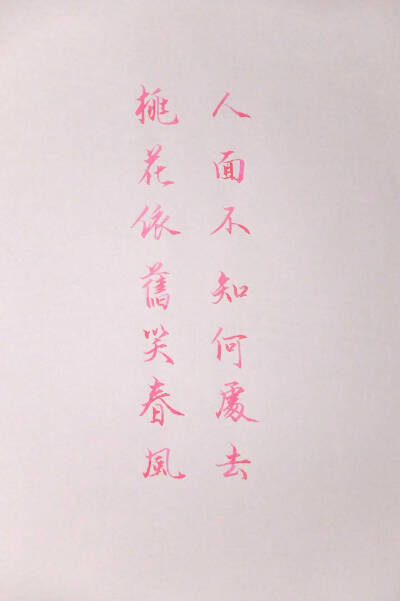 人面不知何處去
桃花依舊笑春風